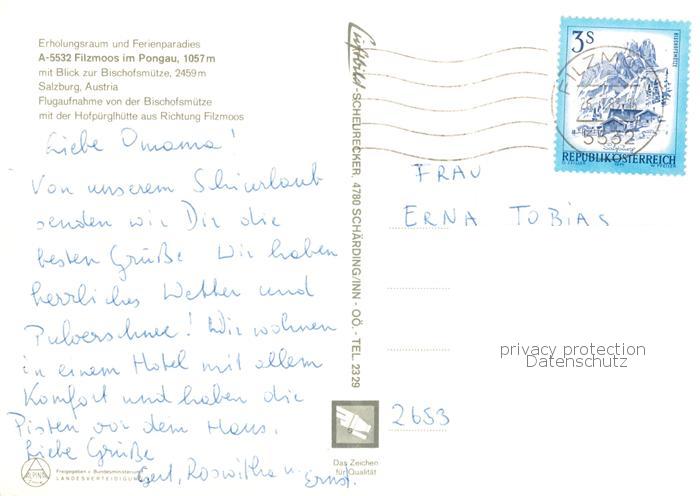 Erholungsraum und Ferienparadies
A-5532 Filzmoos im Pongau, 1057 m
mit Blick zur Bischofsmütze, 2459 m
Salzburg, Austria
Flugaufnahme von der Bischofsmütze
mit der Hofpürglhütte aus Richtung Filzmoos
Liebe Omama!
Von unserem Schiurlaub
senden wir Dir die
besten Grüße. Wir haben
herrliches Wetter und
Pulverschnee! Wir wohnen
in einem Hotel mit allem
Komfort und haben die
Pisten vor dem Haus.
Liebe Grüße
Gerl, Roswitha u. Ernst.
ALPINA
Freigegeben v. Bundesministerium
LANDESVERTEIDIGUNG
Luftbild-SCHEURECKER, 4780 SCHÄRDING/INN - OÖ. - TEL. 23 29
Das Zeichen
für Qualität
3 S
BISCHOFSMÜTZE
Salzburg
REPUBLIK ÖSTERREICH
FILZMOOS
5532
FRAU
ERNA TOBIAS
privacy protection
Datenschutz
2653